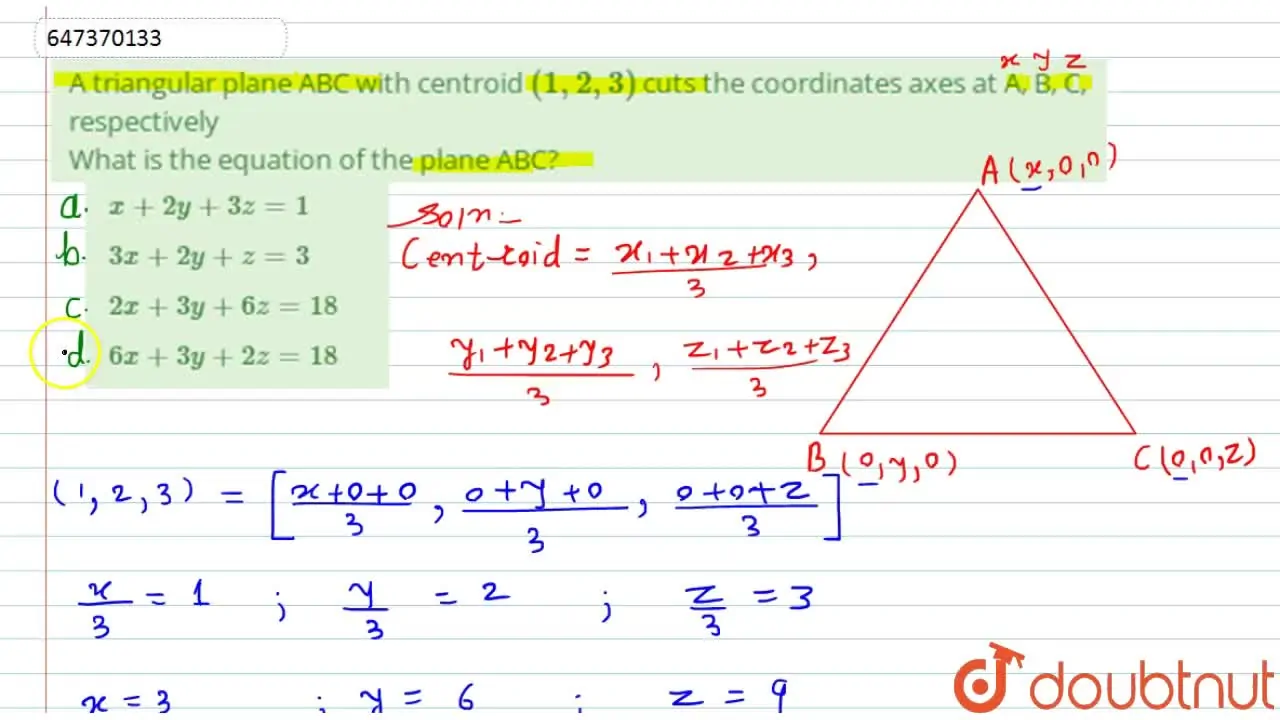 647370133
x y z
A triangular plane ABC with centroid (1, 2, 3) cuts the coordinates axes at A, B, C,
respectively
What is the equation of the plane ABC?
a. x + 2y + 3z = 1
b. 3x + 2y + z = 3
c. 2x + 3y + 6z = 18
d. 6x + 3y + 2z = 18
Soln:-
Centroid = x₁+x₂+x₃/3,
y₁+y₂+y₃/3, z₁+z₂+z₃/3
A (x,0,0)
B (0,y,0)
C (0,0,z)
(1,2,3) = [x+0+0/3, 0+y+0/3, 0+0+z/3]
x/3 = 1 ; y/3 = 2 ; z/3 = 3
x = 3 ; y = 6 ; z = 9
doubtnut